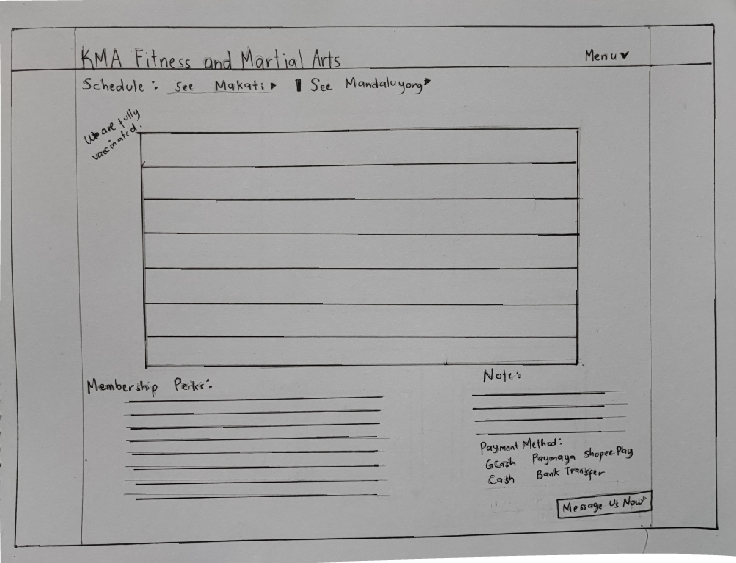 KMA Fitness and Martial Arts
Menu
Schedule: See Makati See Mandaluyong
We are fully
vaccinated:
Membership Perks:
Note:
Payment Method:
GCash Paymaya ShopeePay
Cash Bank Transfer
Message Us Now